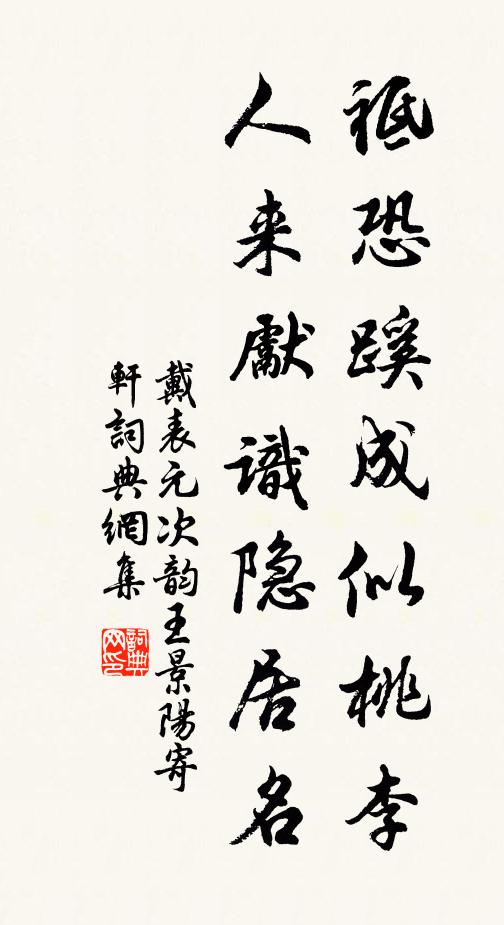 祗恐蹊成似桃李
人来獻識隐居名
戴表元次韵王景陽寄
軒詞典網集
詞典网印